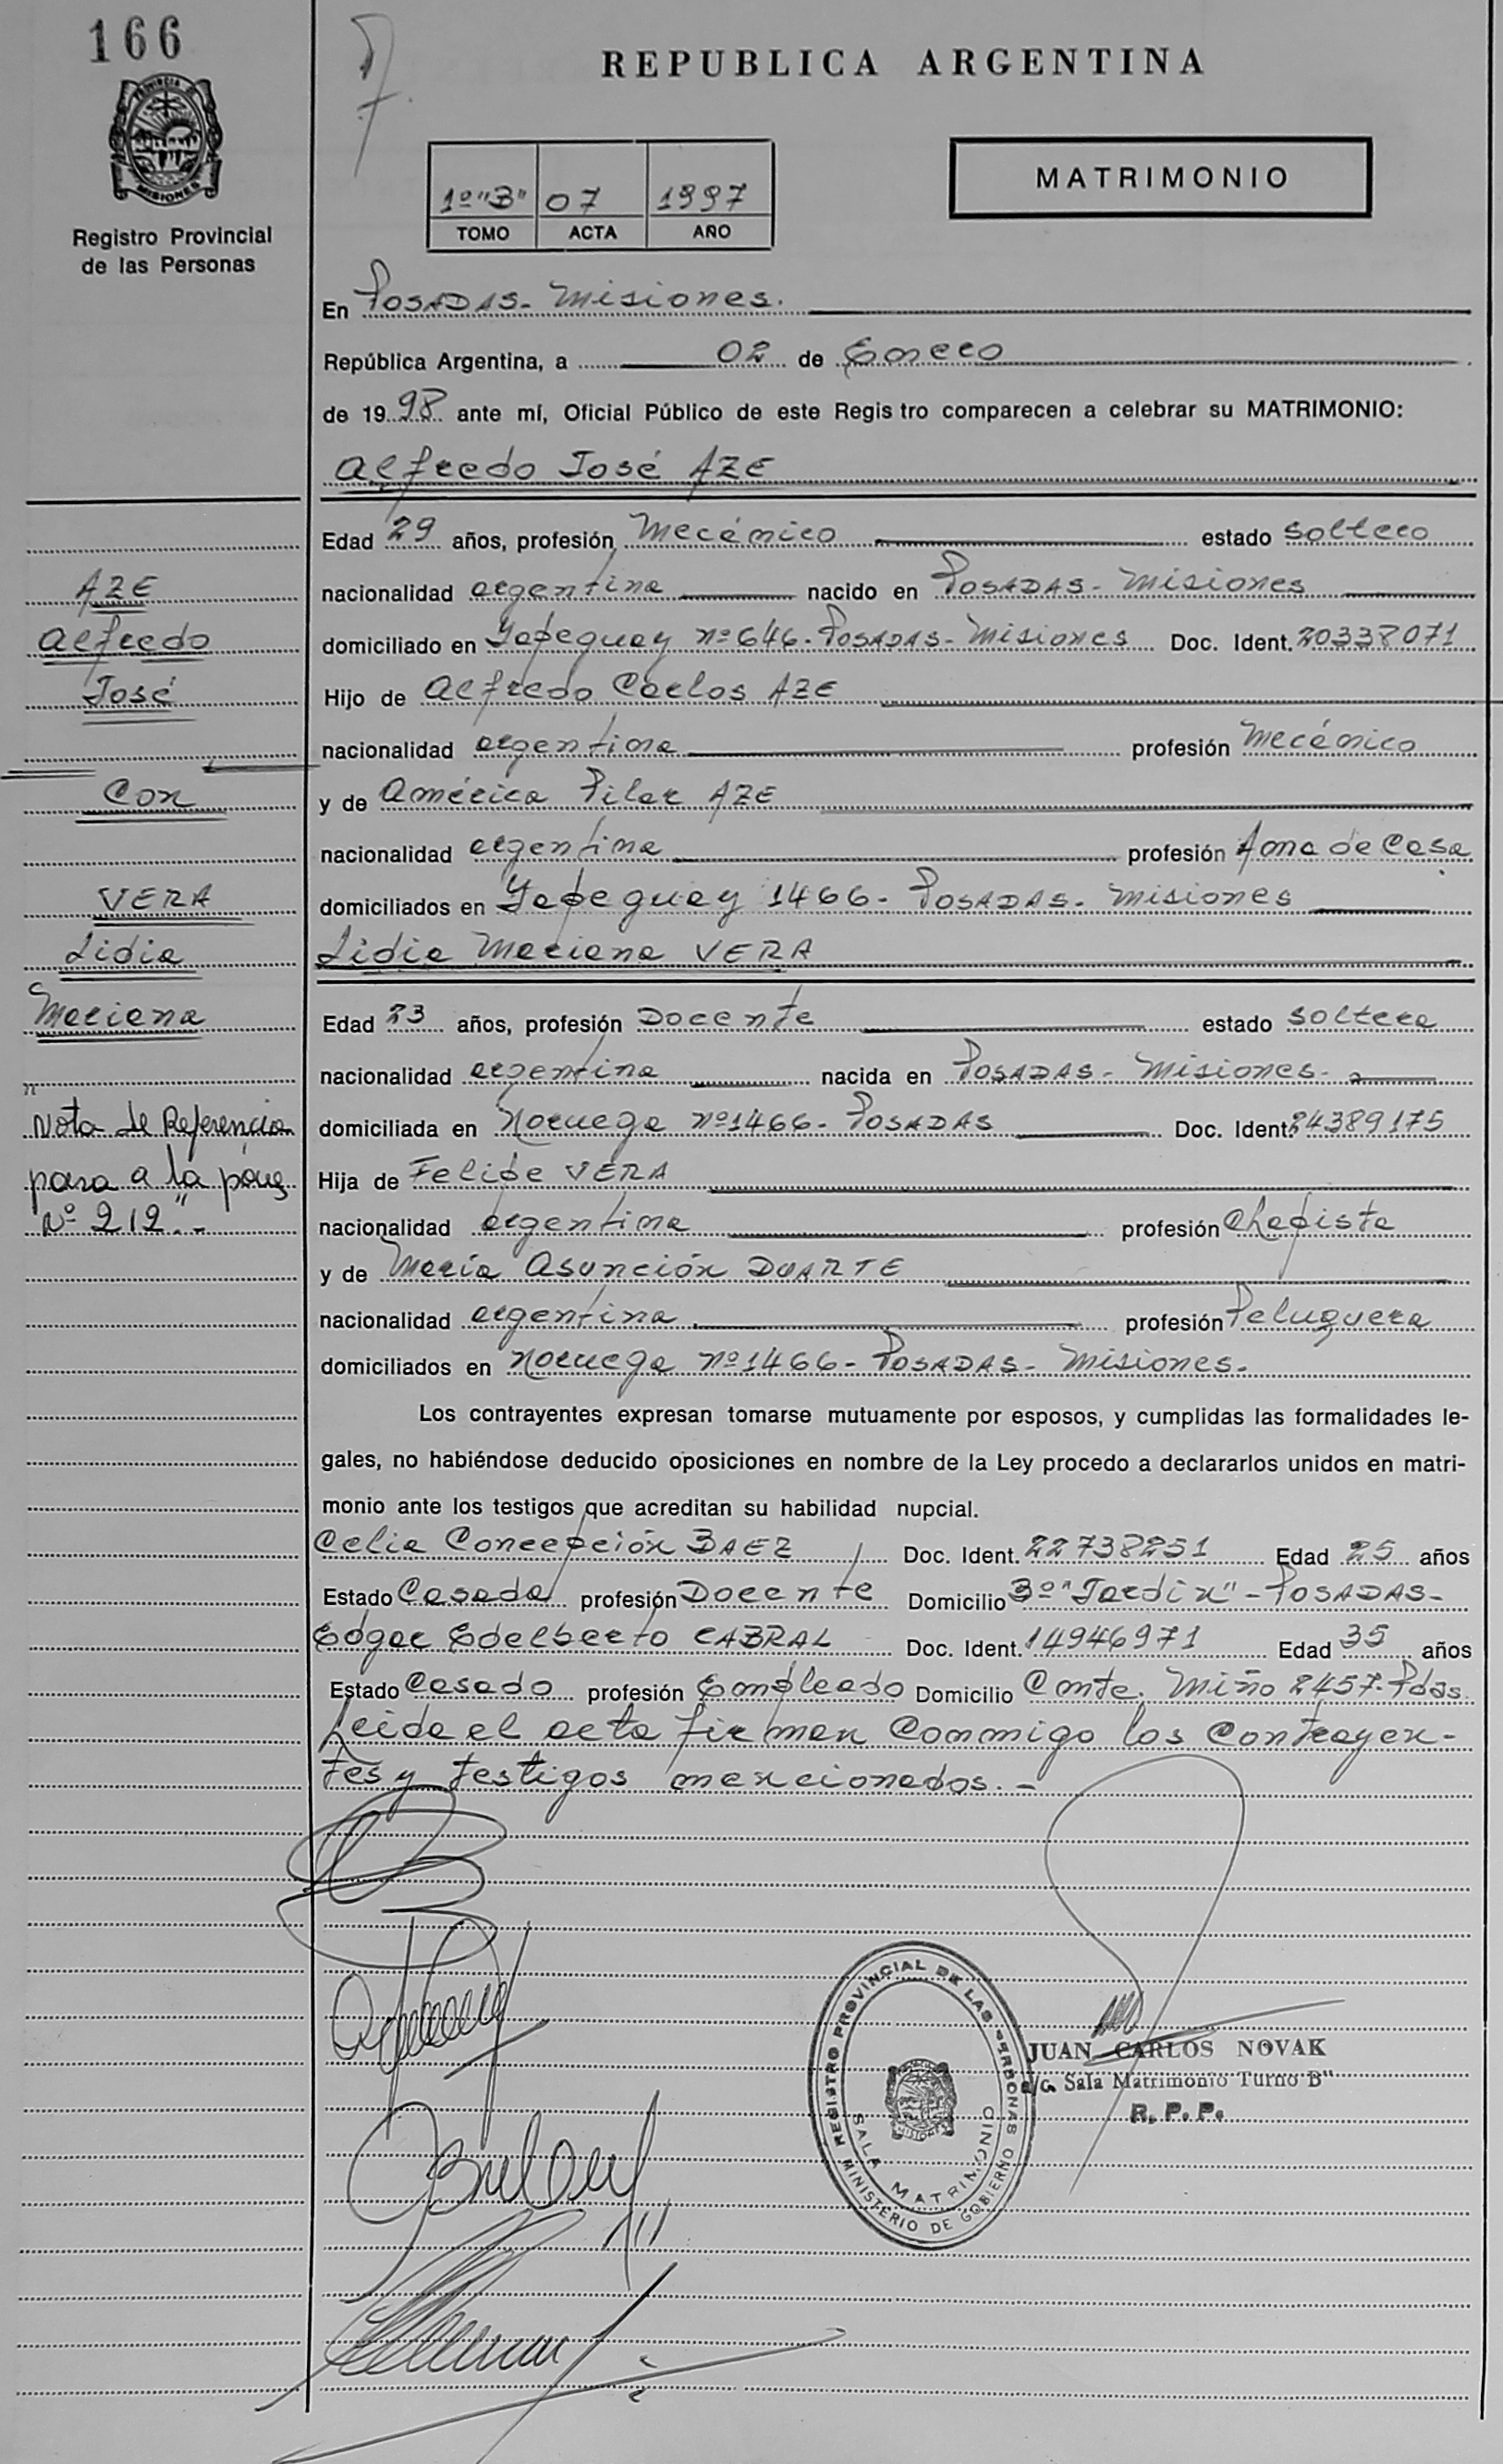 166
REPUBLICA ARGENTINA
PROVINCIA D
MISIONES
Registro Provincial
de las Personas
1º "B" 07 1997
TOMO ACTA AÑO
MATRIMONIO
En POSADAS - Misiones.
República Argentina, a 02 de Enero
de 1998 ante mí, Oficial Público de este Regis tro comparecen a celebrar su MATRIMONIO:
Alfredo José AZE
Edad 29 años, profesión Mecánico estado soltero
AZE
nacionalidad argentina nacido en POSADAS - Misiones
Alfredo
domiciliado en Yapeguay nº 646 - POSADAS - Misiones Doc. Ident. 20338071
José
Hijo de Alfredo Carlos AZE
nacionalidad argentina profesión Mecánico
Con
y de América Pilar AZE
nacionalidad argentina profesión Ama de Casa
VERA
domiciliados en Yapeguay 1466 - POSADAS - Misiones
Lidia
Lidia Mariana VERA
Mariana
Edad 23 años, profesión Docente estado soltera
nacionalidad argentina nacida en POSADAS - Misiones -
"Nota de Referencia
domiciliada en Noruega nº 1466 - POSADAS Doc. Ident. 24389175
pasa a la pág
Hija de Felipe VERA
Nº 212".-
nacionalidad argentina profesión Chapista
y de María Asunción DUARTE
nacionalidad argentina profesión Peluquera
domiciliados en Noruega nº 1466 - POSADAS - Misiones.
Los contrayentes expresan tomarse mutuamente por esposos, y cumplidas las formalidades le-
gales, no habiéndose deducido oposiciones en nombre de la Ley procedo a declararlos unidos en matri-
monio ante los testigos que acreditan su habilidad nupcial.
Celia Concepción BAEZ Doc. Ident. 22738251 Edad 25 años
Estado Casada profesión Docente Domicilio Bº "Jardín" - POSADAS -
Edgar Edelberto CABRAL Doc. Ident. 14946971 Edad 35 años
Estado Casado profesión Empleado Domicilio Cnte. Miño 2457 - Pdas.
Leida el acta firman conmigo los contrayen-
tes y testigos mencionados.-
REGISTRO PROVINCIAL DE LAS PERSONAS
MINISTERIO DE GOBIERNO
SALA MATRIMONIO
JUAN CARLOS NOVAK
a/c. Sala Matrimonio Turno B"
R. P. P.